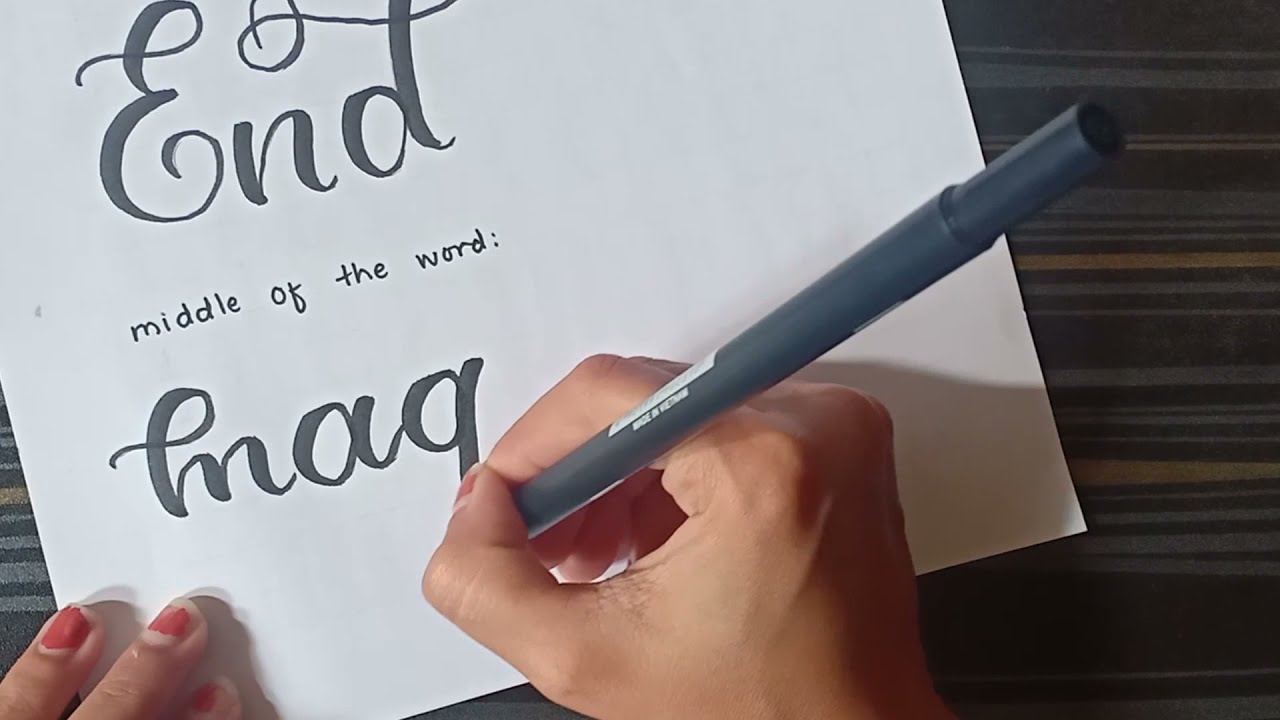 End
middle of the word:
mag
MADE IN VIETNAM